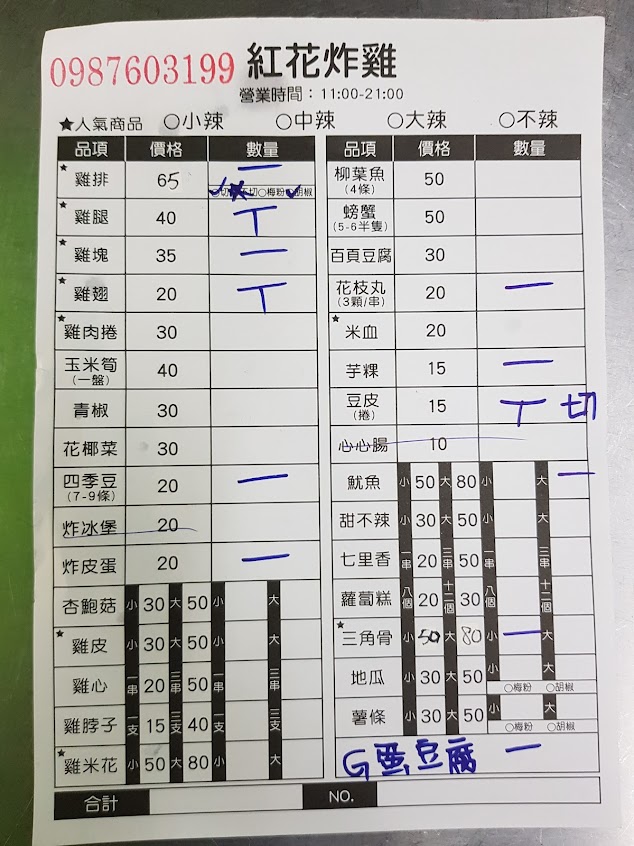 0987603199 紅花炸雞
營業時間：11:00-21:00
★人氣商品 ○小辣 ○中辣 ○大辣 ○不辣
品項 價格 數量
★雞排 65 一
○切 不切 ○梅粉 ○胡椒
★雞腿 40 丅
★雞塊 35 一
★雞翅 20 丅
★雞肉捲 30
玉米筍 40
(一盤)
青椒 30
花椰菜 30
四季豆 20 一
(7-9條)
炸冰堡 20
炸皮蛋 20 一
杏鮑菇 小 30 大 50 小 大
★雞皮 小 30 大 50 小 大
雞心 一串 20 三串 50 一串 三串
雞脖子 一支 15 三支 40 一支 三支
★雞米花 小 50 大 80 小 大
品項 價格 數量
柳葉魚 50
(4條)
螃蟹 50
(5-6半隻)
百頁豆腐 30
花枝丸 20 一
(3顆/串)
★米血 20
芋粿 15 一
豆皮 15 丅 切
(捲)
心心腸 10
魷魚 小 50 大 80 小 大 一
甜不辣 小 30 大 50 小 大
七里香 一串 20 三串 50 一串 三串
蘿蔔糕 八個 20 十二個 30 八個 十二個
★三角骨 小 50 大 80 小 一 大
地瓜 小 30 大 50 小 大
○梅粉 ○胡椒
薯條 小 30 大 50 小 大
○梅粉 ○胡椒
G蛋豆腐 一
合計 NO.